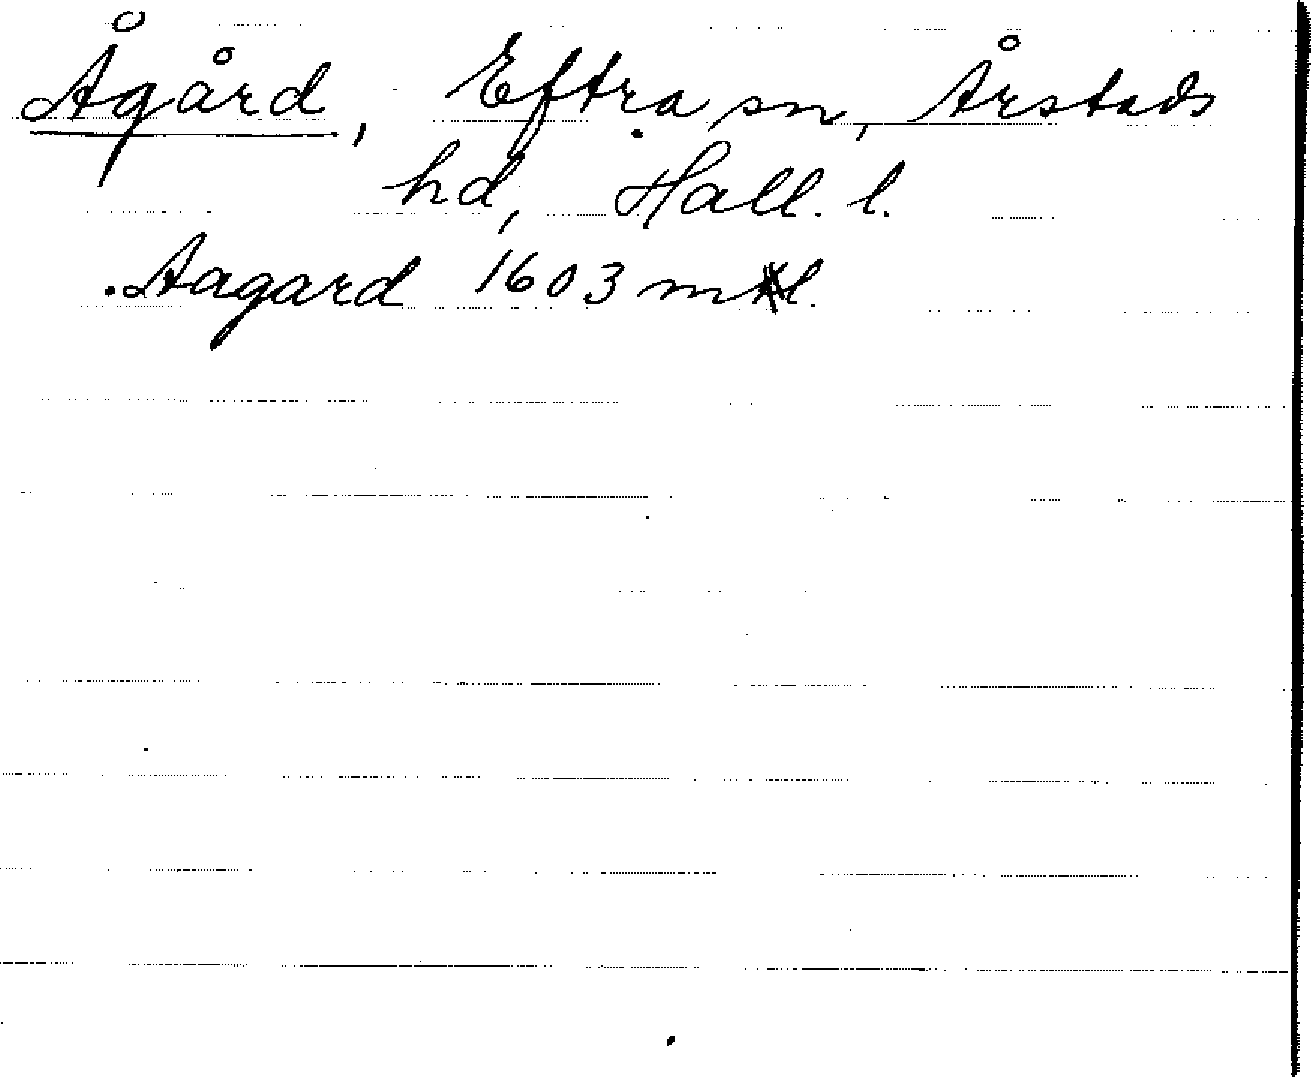 Ågård, Eftra sn, Årstads
hd, Hall. l.
Aagard 1603 mtl.